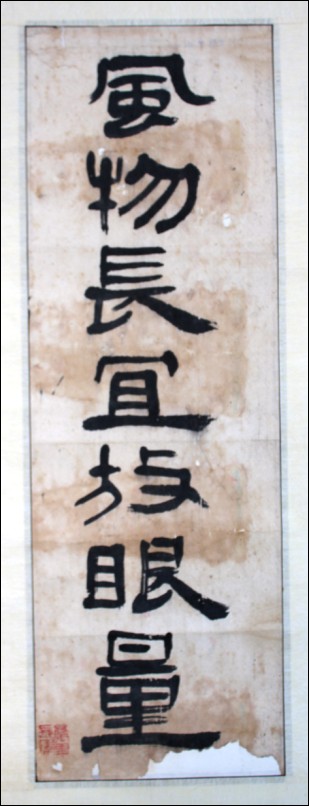 風物長冝放眼量